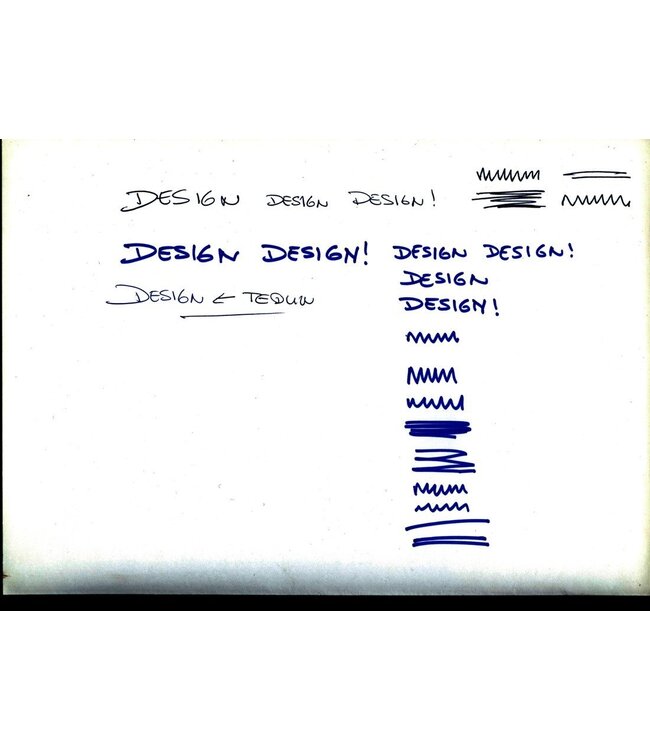 DESIGN DESIGN DESIGN!
DESIGN DESIGN! DESIGN DESIGN!
DESIGN
DESIGN!
DESIGN ←